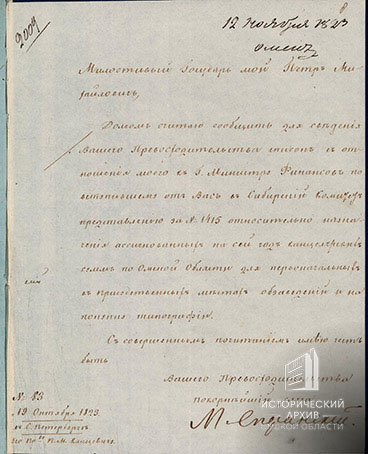 2009
12 ноября 1823
Милостивый Государь мой Петръ Ми-
хайловичь,
Долгомъ считаю сообщить для свѣденія
Вашего Превосходительства списокъ съ от-
ношенія моего къ Г. Министру Финансовъ по
вступившему отъ Васъ въ Сибирскій Комитетъ
представленію за N. 1415 относительно назна-
ченія ассигнованныхъ на сей годъ
суммъ по Омской Области для первоначальныхъ
въ присутственныхъ мѣстахъ обзаведеній и на
типографіи.
Съ совершеннымъ почитаніемъ имѣю честь
быть
Вашего Превосходительства
покорнѣйшій
М Сперанскій
№ 83
19 Октября 1823.
въ С. Петербургѣ
П. М. Капцевичу
ИСТОРИЧЕСКИЙ
АРХИВ
ОМСКОЙ ОБЛАСТИ